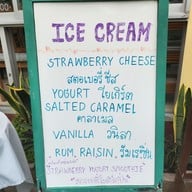 ICE CREAM
STRAWBERRY CHEESE
สตอเบอรี่ชีส
YOGURT โยเกิร์ต
SALTED CARAMEL
คาลาเมล
VANILLA วนิลา
RUM, RAISIN, รัมเรซิ่น
STRAWBERRY YOGURT SMOOTHIE